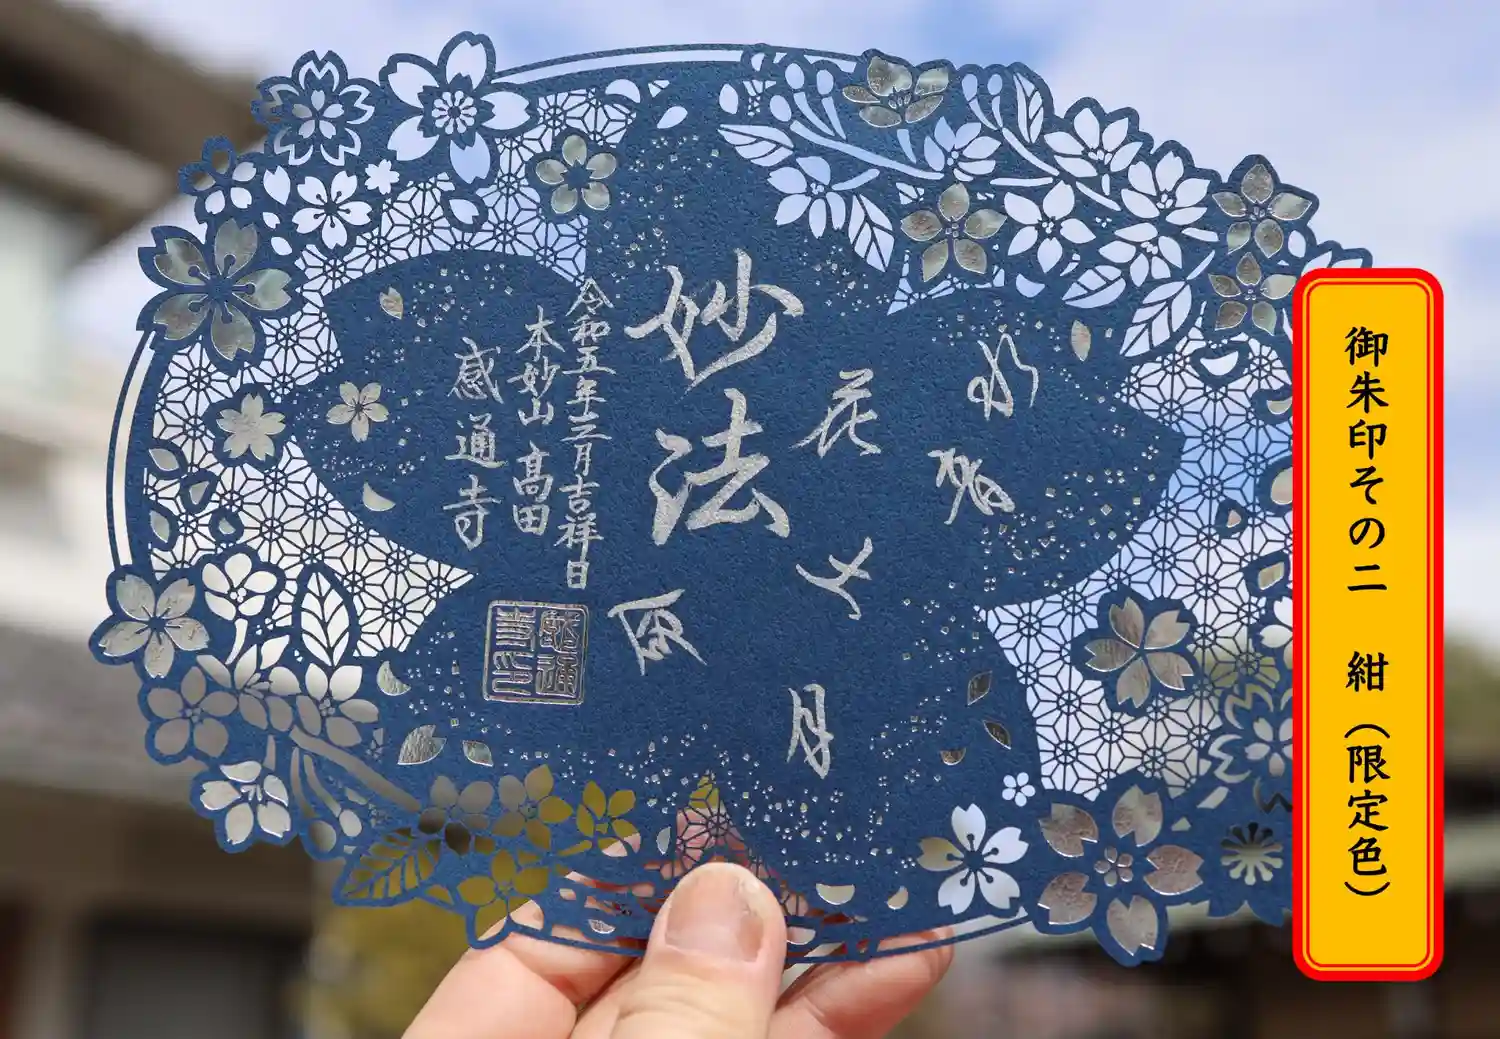 御朱印その二　紺（限定色）
花
月
妙法
令和五年三月吉祥日
本妙山　高田
感通寺
感通寺印